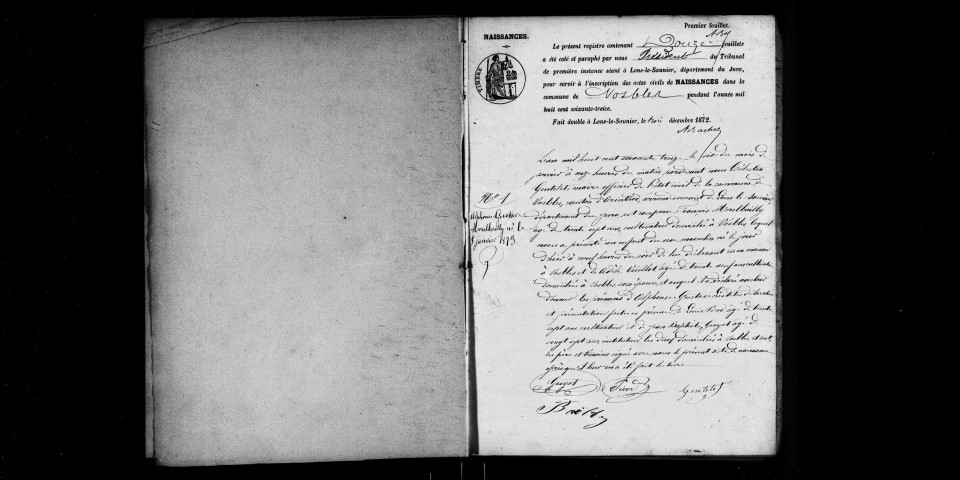 Premier feuillet.
NAISSANCES.
Le présent registre contenant Douze feuillets
a été coté et paraphé par nous Président du Tribunal
de première instance séant à Lons-le-Saunier, département du Jura,
pour servir à l'inscription des actes civils de NAISSANCES dans la
commune de Vosbles pendant l'année mil
huit cent soixante-treize.
Fait double à Lons-le-Saunier, le trois décembre 1872.
TIMBRE
L'an mil huit cent soixante treize le six du mois de
janvier à dix heures du matin pardevant nous
Gentelet, maire officier de l'état civil de la commune de
Vosbles, canton d'Arinthod, arrondissement de Lons le Saunier,
département du Jura, est comparu François
âgé de trente sept ans, cultivateur domicilié à Vosbles lequel
nous a présenté un enfant du sexe masculin né le jour
d'hier à neuf heures du soir de lui déclarant en sa maison
à Vosbles et de Vuillot âgée de trente ans cultivatrice
domiciliée à Vosbles son épouse, et auquel il a déclaré vouloir
donner les prénoms d'Alphonse Gustave Lesdites déclaration
et présentation faites en présence de Louis âgé de trente
sept ans cultivateur et de Jean Baptiste Guyot âgé de
vingt sept ans instituteur les deux domiciliés à Vosbles et ont
les père et témoins signé avec nous le présent acte de naissance
après qu'il leur en a été fait lecture
No 1
Alphonse Gustave
né le
5 janvier 1873
Guyot
Gentelet